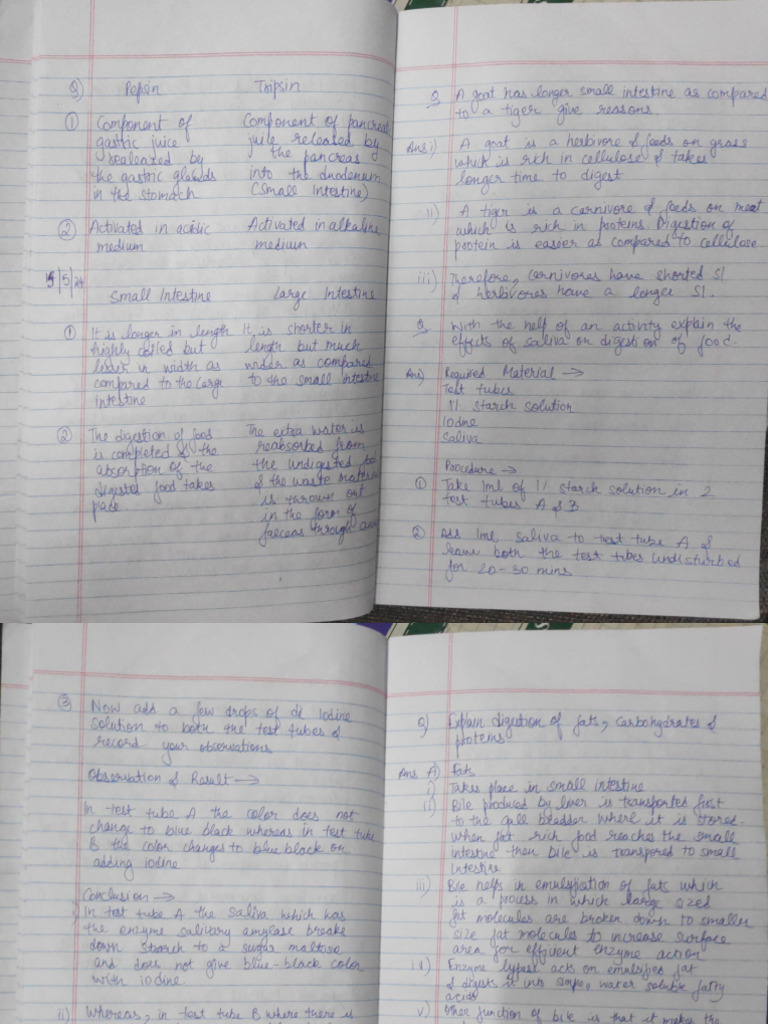 Q) Pepsin Tripsin
① Component of gastric juice realeased by the gastric glands in the stomach
Component of pancreatic juice released by the pancreas into the duodenum (Small Intestine)
② Activated in acidic medium
Activated in alkaline medium
15/5/24
Small Intestine Large Intestine
① It is longer in length highly coiled but lesser in width as compared to the large intestine
It is shorter in length but much wider as compared to the small intestine
② The digestion of food is completed & the absorption of the digested food takes place
The extra water is reabsorbed from the undigested food & the waste material is thrown out in the form of faeceas through
Q A goat has longer small intestine as compared
to a tiger give reasons.
Ans i) A goat is a herbivore & feeds on grass
which is rich in cellulose & takes
longer time to digest
ii) A tiger is a carnivore & feeds on meat
which is rich in proteins. Digestion of
protein is easier as compared to cellulose
iii) Therefore, carnivores have shorted SI
& herbivores have a longer SI.
Q With the help of an activity explain the
effects of saliva on digestion of food.
Ans) Required Material →
Test tubes
1% starch solution
Iodine
Saliva
Procedure →
① Take 1ml of 1% starch solution in 2
test tubes A & B
② Add 1ml saliva to test tube A &
leave both the test tubes undisturbed
for 20-30 mins
③ Now add a few drops of dil Iodine
solution to both the test tubes &
record your observations
Observation & Result →
In test tube A the color does not
change to blue black whereas in test tube
B the color changes to blue black on
adding iodine
Conclusion →
i) In test tube A the saliva which has
the enzyme salivary amylase breaks
down starch to a sugar maltose
and does not give blue-black color
with iodine
ii) Whereas, in test tube B where there is
Q) Explain digestion of fats, carbohydrates &
proteins
Ans A) Fats
i) Takes place in small intestine
ii) Bile produced by liver is transported first
to the gall bladder where it is stored.
When fat rich food reaches the small
intestine then bile is transpored to small
intestine
iii) Bile helps in emulsification of fats which
is a process in which large sized
fat molecules are broken down to smaller
size fat molecules to increase surface
area for efficient enzyme action
iv) Enzyme lypase acts on emulsified fat
& digests it into simple, water soluble fatty
acids
v) Other function of bile is that it makes the